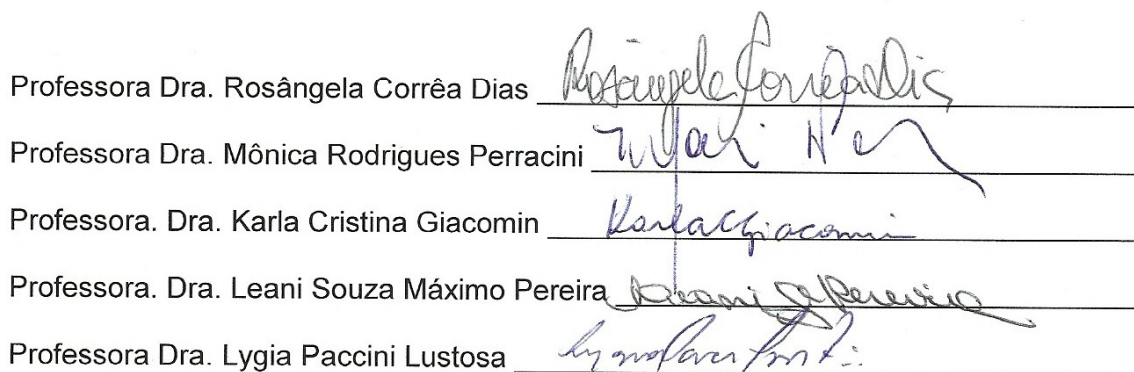 Professora Dra. Rosângela Corrêa Dias Rosângela Corrêa Dias
Professora Dra. Mônica Rodrigues Perracini
Professora. Dra. Karla Cristina Giacomin KarlaCGiacomin
Professora. Dra. Leani Souza Máximo Pereira Leani S Pereira
Professora Dra. Lygia Paccini Lustosa